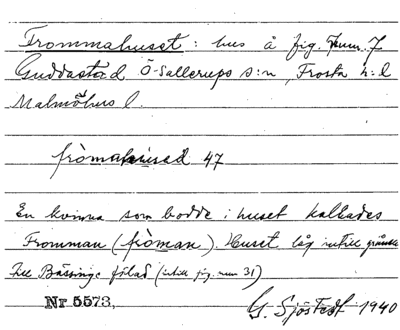 Frommahuset: hus å fig. num. 7
Guddastad Ö-Sallerups s:n, Frosta h:d
Malmöhus l.
fròmahused 47
En kvinna som bodde i huset kallades
Fromman (fròman). Huset låg intill gränsen
till Bässinge fälad (intill fig. num 31)
Nr 5573,
G. Sjöstedt 1940